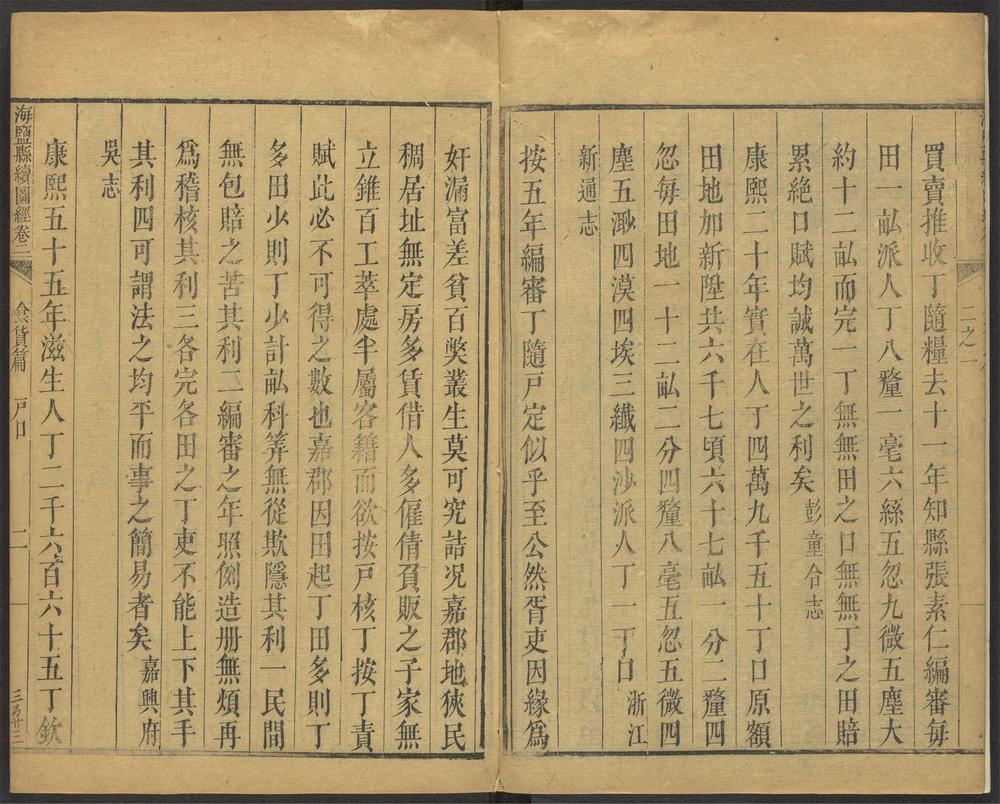 買賣推收丁隨糧去十一年知縣張素仁編審毎
田一畝派人丁八釐一毫六絲五忽九微五塵大
約十二畝而完一丁無無田之口無無丁之田賠
累絶口賦均誠萬世之利矣彭童合志
康熙二十年實在人丁四萬九千五十丁口原額
田地加新陞共六千七頃六十七畝一分二釐四
忽毎田地一十二畝二分四釐八毫五忽五微四
塵五渺四漠四埃三纖四沙派人丁一丁口浙江
新通志
按五年編審丁隨戸定似乎至公然胥吏因緣爲
奸漏富差貧百獘叢生莫可究詰况嘉郡地狹民
稠居址無定房多賃借人多僱倩負販之子家無
立錐百工萃處半屬客籍而欲按戸核丁按丁責
賦此必不可得之數也嘉郡因田起丁田多則丁
多田少則丁少計畝科筭無從欺隱其利一民間
無包賠之苦其利二編審之年照例造册無煩再
爲稽核其利三各完各田之丁吏不能上下其手
其利四可謂法之均平而事之簡易者矣嘉興府
吳志
康熙五十五年滋生人丁二千六百六十五丁欽
海鹽縣續圖經卷二
食貨篇 戸口
二
二之一